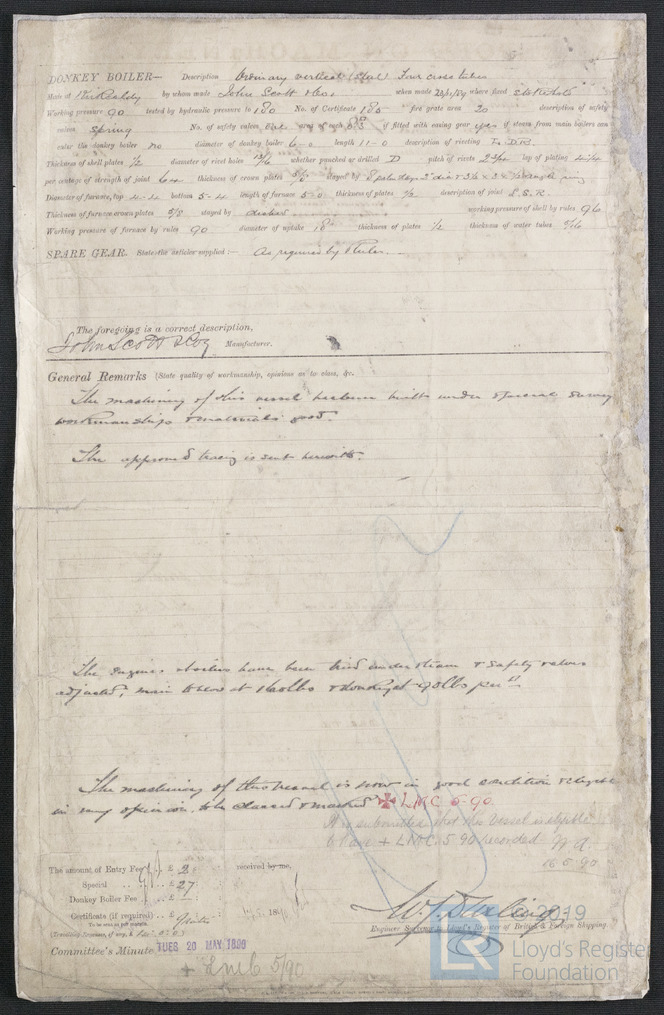 DONKEY BOILER— Description Ordinary vertical (steel) Four cross tubes
Made at Kirkcaldy by whom made John Scott & Co. when made 23/1/89 where fixed stokehold
Working pressure 90 tested by hydraulic pressure to 180 No. of Certificate 185 fire grate area 20 description of safety
valves spring No. of safety valves area of each if fitted with easing gear yes if steam from main boilers can
enter the donkey boiler no diameter of donkey boiler 6-0 length 11-0 description of riveting
Thickness of shell plates 1/2 diameter of rivet holes 13/16 whether punched or drilled D pitch of rivets 2 3/4 lap of plating
per centage of strength of joint 64 thickness of crown plates 5/8 stayed by
Diameter of furnace, top 4-4 bottom 5-4 length of furnace 5-0 thickness of plates 1/2 description of joint L.S.R.
Thickness of furnace crown plates 5/8 stayed by dished working pressure of shell by rules 96
Working pressure of furnace by rules 90 diameter of uptake thickness of plates 1/2 thickness of water tubes 5/16
SPARE GEAR. State the articles supplied:— As required by Rules.
The foregoing is a correct description,
John Scott & Co Manufacturer.
General Remarks (State quality of workmanship, opinions as to class, &c.
The machinery of this vessel has been built under special survey
workmanship & materials good.
The approved tracing is sent herewith.
The engines & boilers have been tried under steam & safety valves
adjusted, main to blow at 160lbs & donkey at 90lbs per
The machinery of this vessel is now in good condition & eligible
in my opinion to be classed & marked ✠ LMC 5-90.
It is submitted that this vessel is eligible
to have + LMC. 5.90 recorded
16.5.90
The amount of Entry Fee .. £ 2
received by me,
Special .. .. £ 27
Donkey Boiler Fee .. £
Certificate (if required) .. £
To be sent as per margin.
(Travelling Expenses, if any, £
Engineer Surveyor to Lloyd's Register of British & Foreign Shipping.
Committee's Minute TUES 20 MAY 1890
+ LMC 5/90
© 2019
LR
Lloyd's Register
Foundation